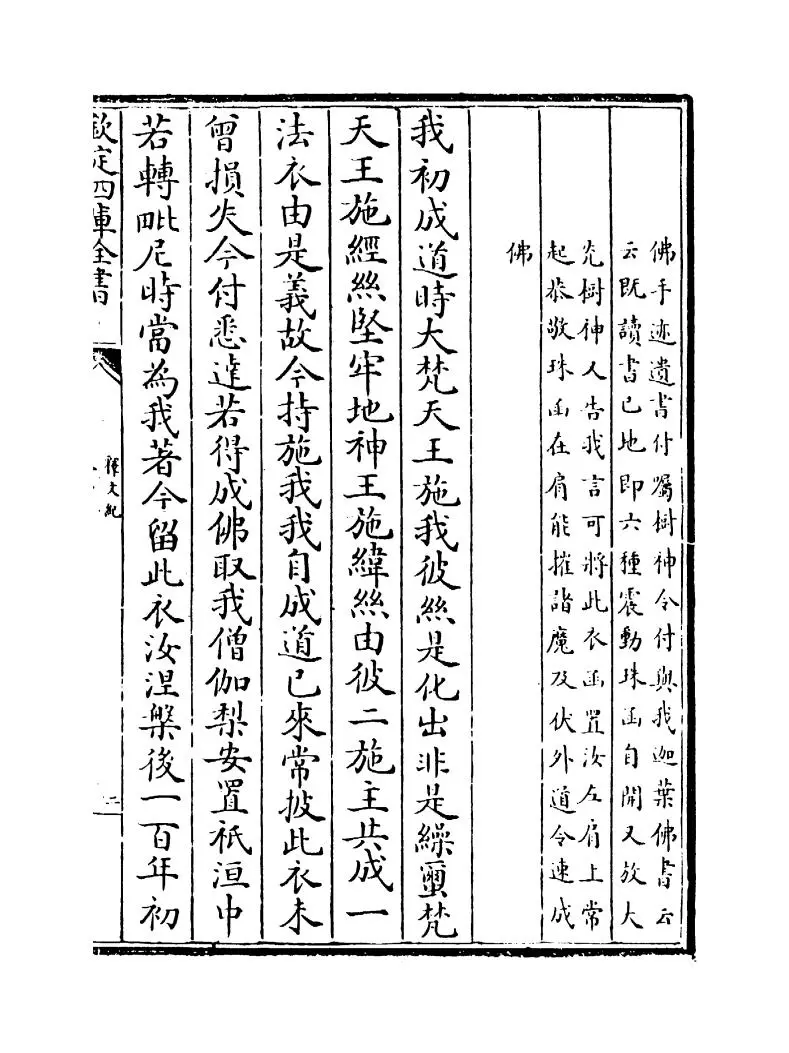 佛手迹遺書付囑樹神令付與我迦葉佛書云
云既讀書已地即六種震動珠函自開又放大
光樹神人告我言可將此衣函置汝左肩上常
起恭敬珠函在肩能摧諸魔及伏外道令速成
佛
我初成道時大梵天王施我彼絲是化出非是繰蠒梵
天王施經絲堅牢地神王施緯絲由彼二施主共成一
法衣由是義故今持施我我自成道已來常披此衣未
曾損失今付悉達若得成佛取我僧伽梨安置祇洹中
若轉毗尼時當為我著今留此衣汝涅槃後一百年初
欽定四庫全書
釋文紀